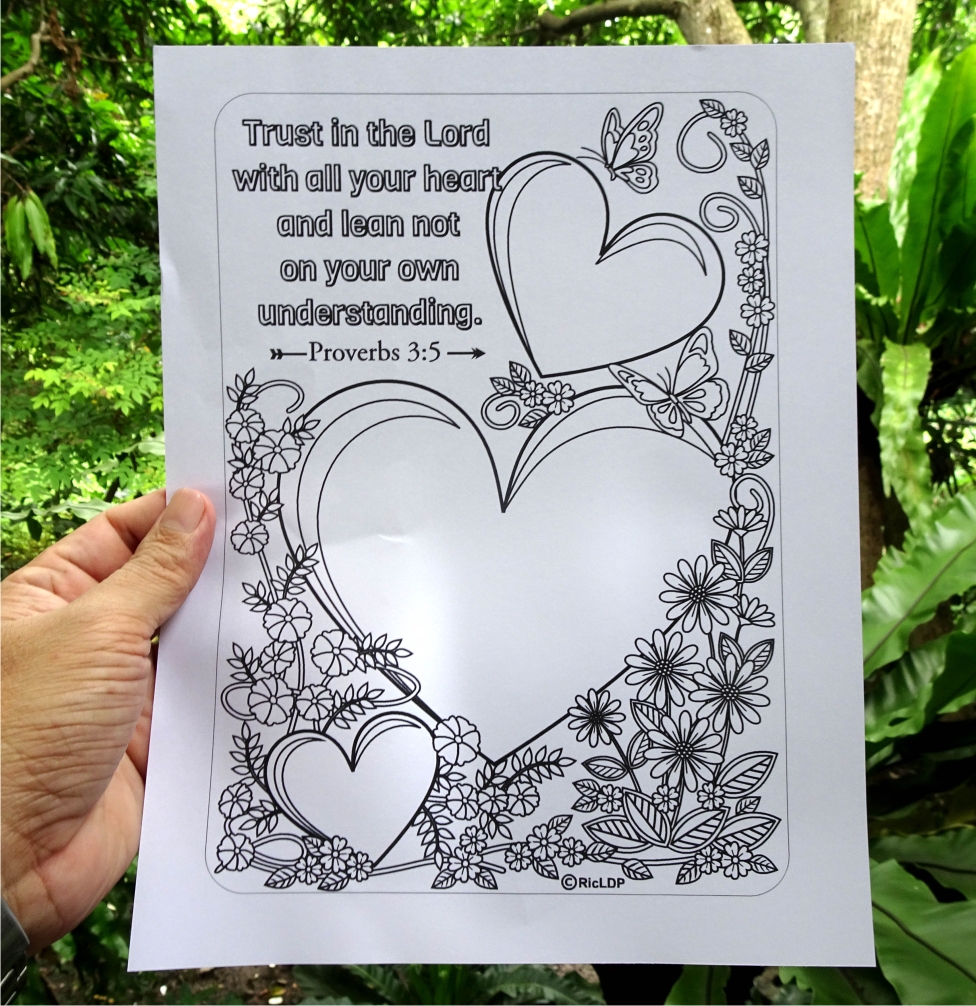 Trust in the Lord
with all your heart
and lean not
on your own
understanding.
Proverbs 3:5
©RicLDP